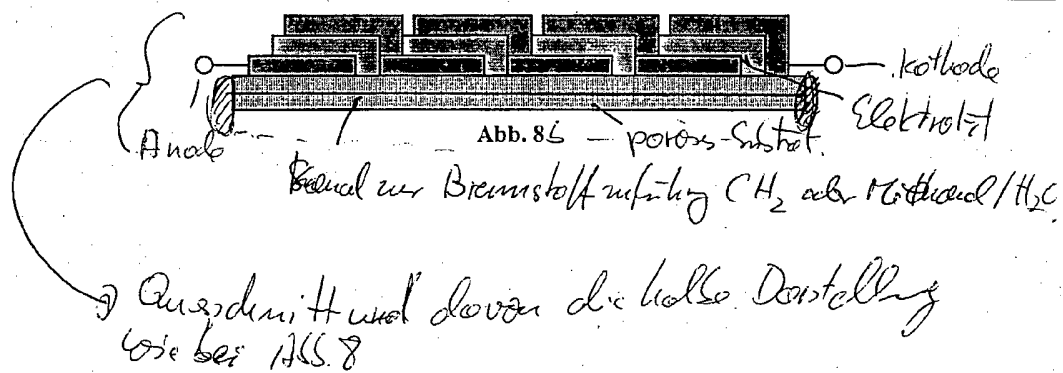 Kathode
Elektrolyt
Anode
Abb. 8b - poröses-Substrat.
Kanal zur Brennstoffzuführung (H₂ oder Methanol/H₂O
→ Querschnitt und davon die halbe Darstellung
wie bei Abb. 8